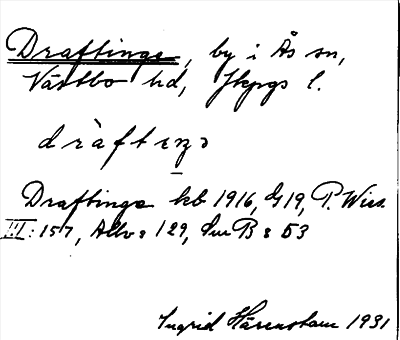 Draftinge, by i Ås sn,
Västbo hd, Jkpgs l.
dràftɪŋə
Draftinge kb 1916, G19, P. Wies.
III: 157, Allv: 129, Sm B: 53
Ingrid Hårenstam 1931